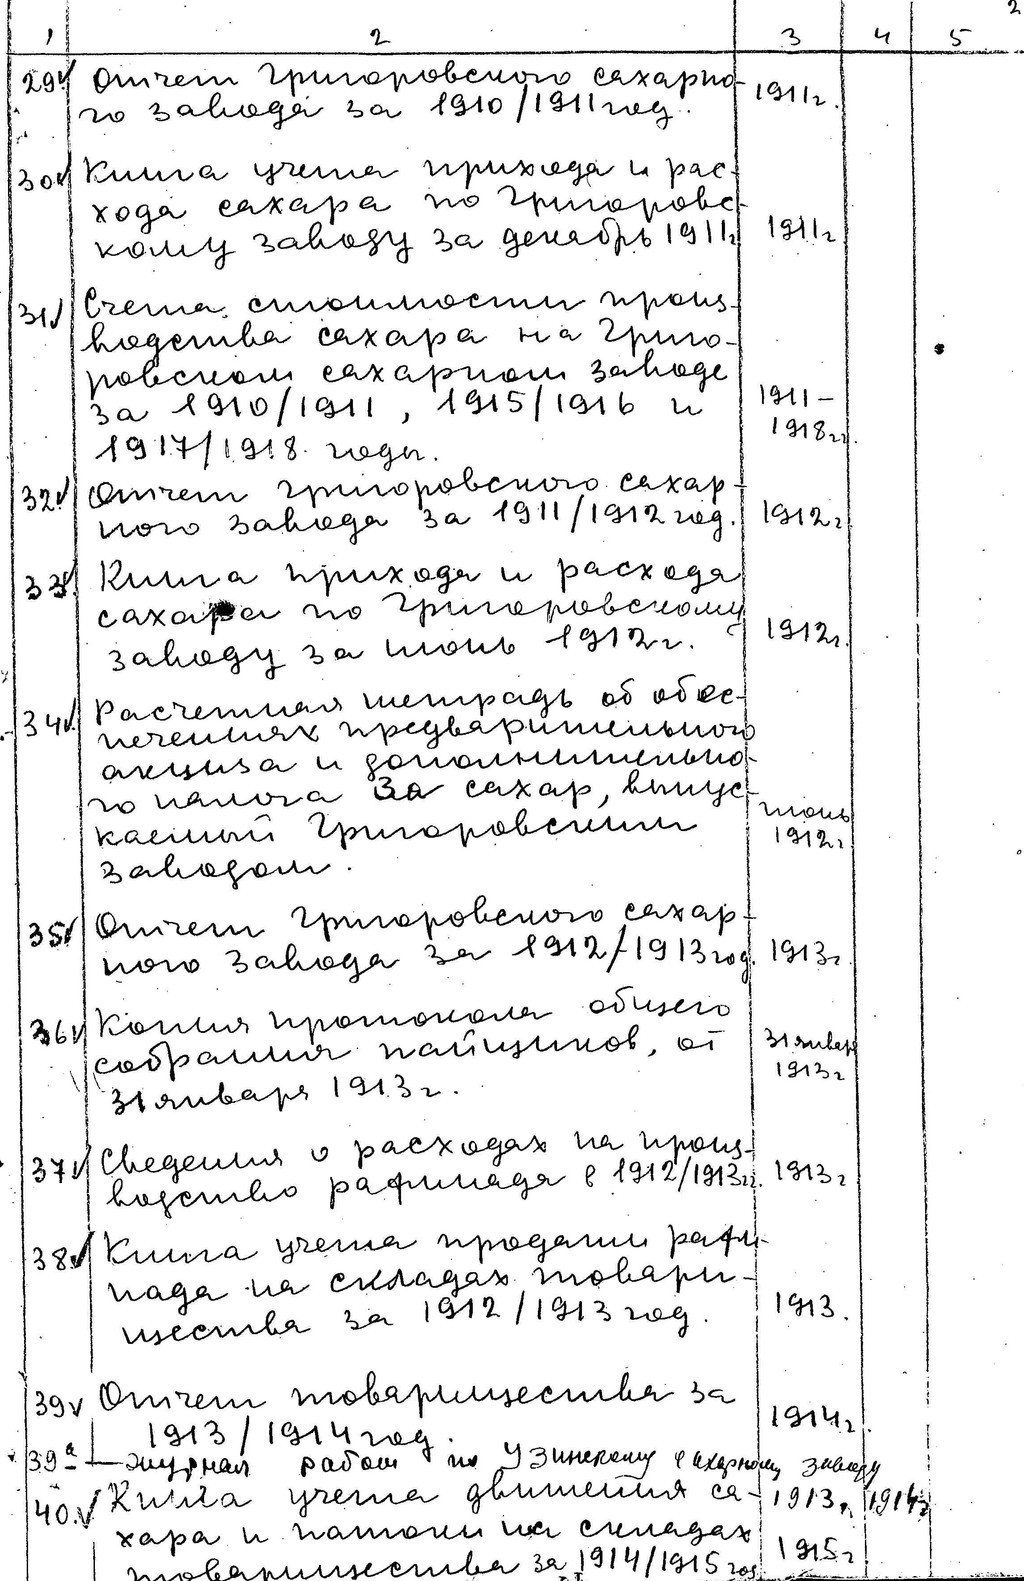 2
1 2 3 4 5
29. Отчет Григоровского сахарно-
го завода за 1910/1911 год. 1911г.
30. Книга учета прихода и рас-
хода сахара по Григоровс-
кому заводу за декабрь 1911г 1911г
31. Счета стоимости произ-
водства сахара на Григо-
ровском сахарном заводе
за 1910/1911, 1915/1916 и 1911-
1917/1918 годы. 1918гг.
32. Отчет Григоровского сахар-
ного завода за 1911/1912 год. 1912г
33. Книга прихода и расхода
сахара по Григоровскому
заводу за июнь 1912г. 1912г.
34. Расчетная тетрадь об обес-
печениях предварительного
акциза и дополнительно-
го налога за сахар, выпус-
каемый Григоровским июнь
заводом. 1912г
35. Отчет Григоровского сахар-
ного завода за 1912/1913 год. 1913г.
36. Копия протокола общего
собрания пайщиков, от 31 января
31 января 1913г. 1913г
37. Сведения о расходах на произ-
водство рафинада в 1912/1913гг. 1913г
38. Книга учета продажи рафи-
нада на складах товари-
щества за 1912/1913 год. 1913.
39. Отчет товарищества за
1913/1914 год. 1914г.
39а Журнал работ по Узинскому сахарному заводу
40. Книга учета движения са- 1913г, 1914г
хара и патоки на складах
товарищества за 1914/1915 год 1915г